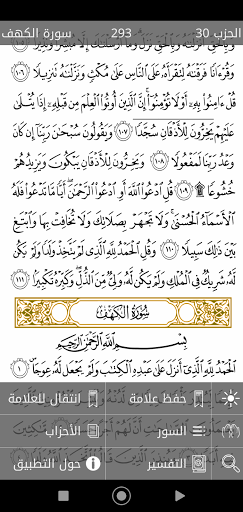 سورة الكهف 293 الحزب 30
وَبِٱلْحَقِّ أَنزَلْنَٰهُ وَبِٱلْحَقِّ نَزَلَ وَمَآ أَرْسَلْنَٰكَ إِلَّا مُبَشِّرًا وَنَذِيرًا ١٠٥
وَقُرْءَانًا فَرَقْنَٰهُ لِتَقْرَأَهُۥ عَلَى ٱلنَّاسِ عَلَىٰ مُكْثٍ وَنَزَّلْنَٰهُ تَنزِيلًا ١٠٦
قُلْ ءَامِنُوا۟ بِهِۦٓ أَوْ لَا تُؤْمِنُوٓا۟ إِنَّ ٱلَّذِينَ أُوتُوا۟ ٱلْعِلْمَ مِن قَبْلِهِۦٓ إِذَا يُتْلَىٰ
عَلَيْهِمْ يَخِرُّونَ لِلْأَذْقَانِ سُجَّدًا ١٠٧ وَيَقُولُونَ سُبْحَٰنَ رَبِّنَآ إِن كَانَ
وَعْدُ رَبِّنَا لَمَفْعُولًا ١٠٨ وَيَخِرُّونَ لِلْأَذْقَانِ يَبْكُونَ وَيَزِيدُهُمْ
خُشُوعًا ۩ ١٠٩ قُلِ ٱدْعُوا۟ ٱللَّهَ أَوِ ٱدْعُوا۟ ٱلرَّحْمَٰنَ أَيًّا مَّا تَدْعُوا۟ فَلَهُ
ٱلْأَسْمَآءُ ٱلْحُسْنَىٰ وَلَا تَجْهَرْ بِصَلَاتِكَ وَلَا تُخَافِتْ بِهَا وَٱبْتَغِ
بَيْنَ ذَٰلِكَ سَبِيلًا ١١٠ وَقُلِ ٱلْحَمْدُ لِلَّهِ ٱلَّذِى لَمْ يَتَّخِذْ وَلَدًا وَلَمْ يَكُن
لَّهُۥ شَرِيكٌ فِى ٱلْمُلْكِ وَلَمْ يَكُن لَّهُۥ وَلِىٌّ مِّنَ ٱلذُّلِّ وَكَبِّرْهُ تَكْبِيرًا ١١١
سُورَةُ الكَهْفِ
بِسْمِ ٱللَّهِ ٱلرَّحْمَٰنِ ٱلرَّحِيمِ
ٱلْحَمْدُ لِلَّهِ ٱلَّذِىٓ أَنزَلَ عَلَىٰ عَبْدِهِ ٱلْكِتَٰبَ وَلَمْ يَجْعَل لَّهُۥ عِوَجَا ١
حفظ علامة
انتقال للعلامة
السور
الأحزاب
التفسير
حول التطبيق